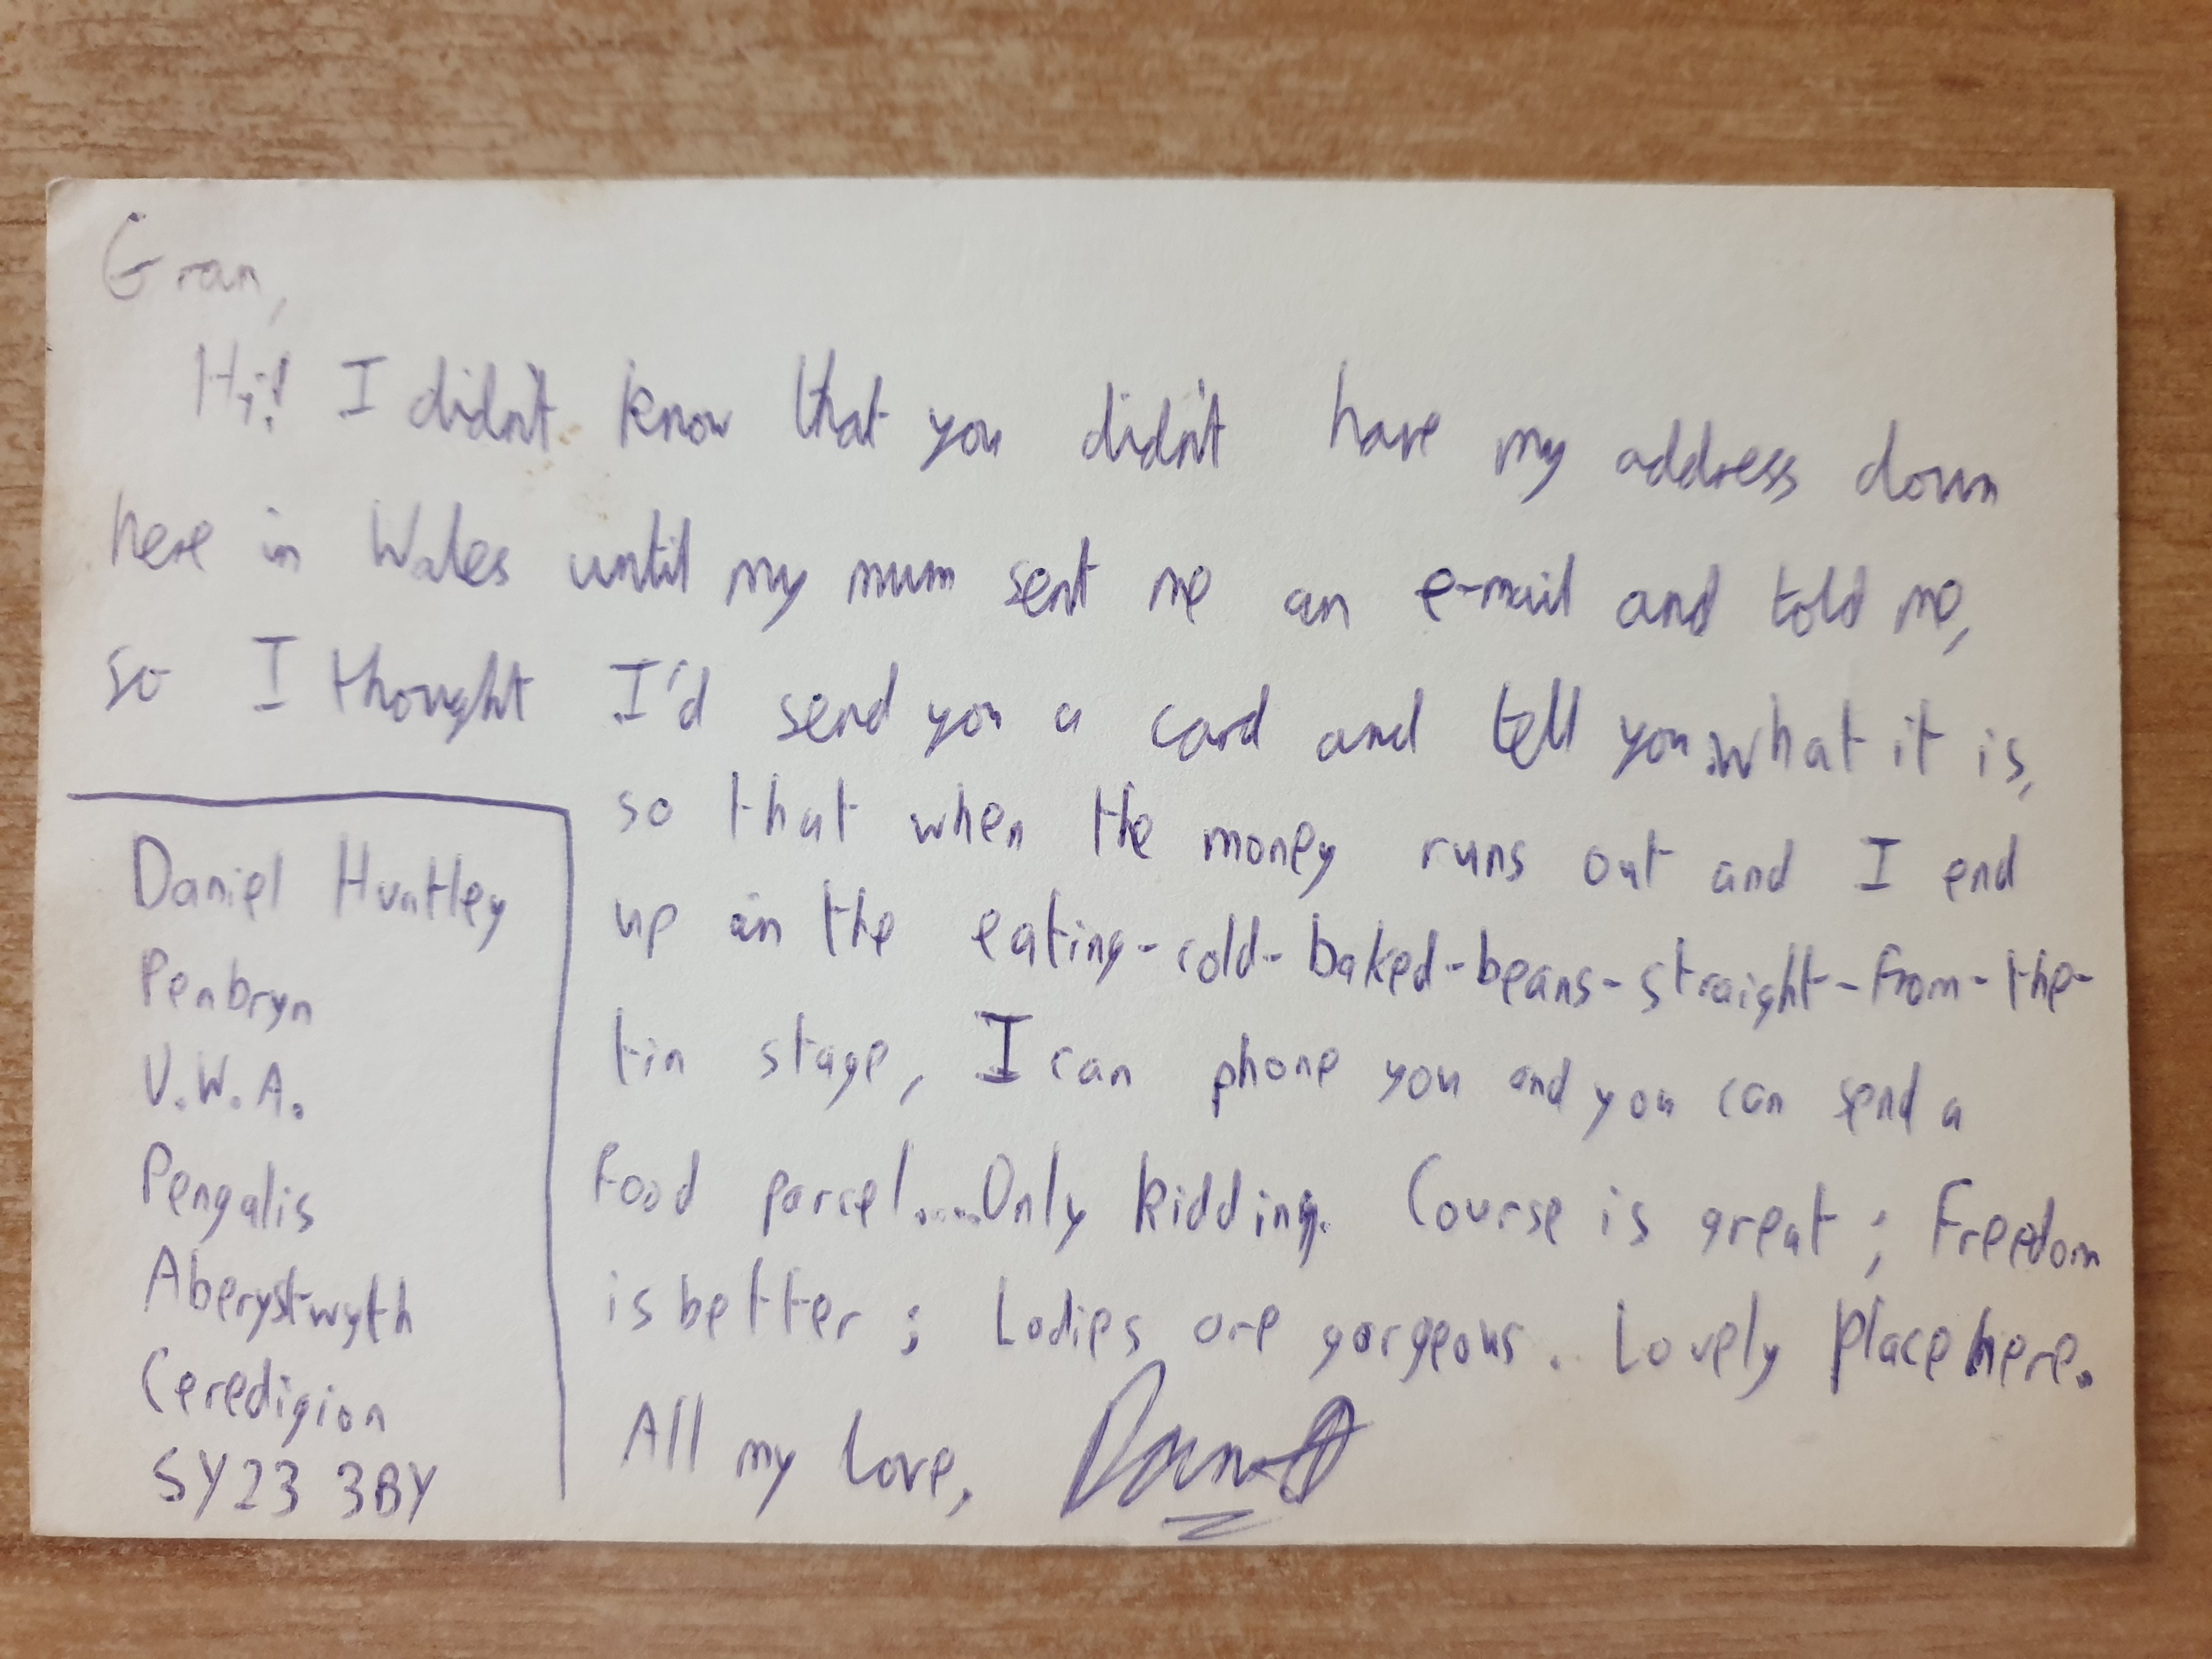 Gran,
Hi! I didn't know that you didn't have my address down
here in Wales until my mum sent me an e-mail and told me,
so I thought I'd send you a card and tell you what it is,
so that when the money runs out and I end
up in the eating-cold-baked-beans-straight-from-the-
tin stage, I can phone you and you can send a
food parcel.....Only kidding. Course is great; Freedom
is better; Ladies are gorgeous. Lovely place here.
All my love,
Daniel Huntley
Penbryn
U.W.A.
Penglais
Aberystwyth
Ceredigion
SY23 3BY